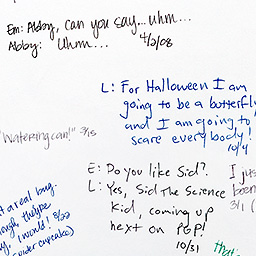 Em: Abby, can you say...uhm...
Abby: Uhm...
4/2/08
L: For Halloween I am
going to be a butterfly
and I am going to
scare everybody!
10/4
"Watering can!" 3/15
E: Do you like Sid?
L: Yes, Sid The Science
Kid, coming up
next on PGP!
10/31
I jus
been
3/1
t a real bug.
ough, the type
I would! 8/22
cupcakes)
that's